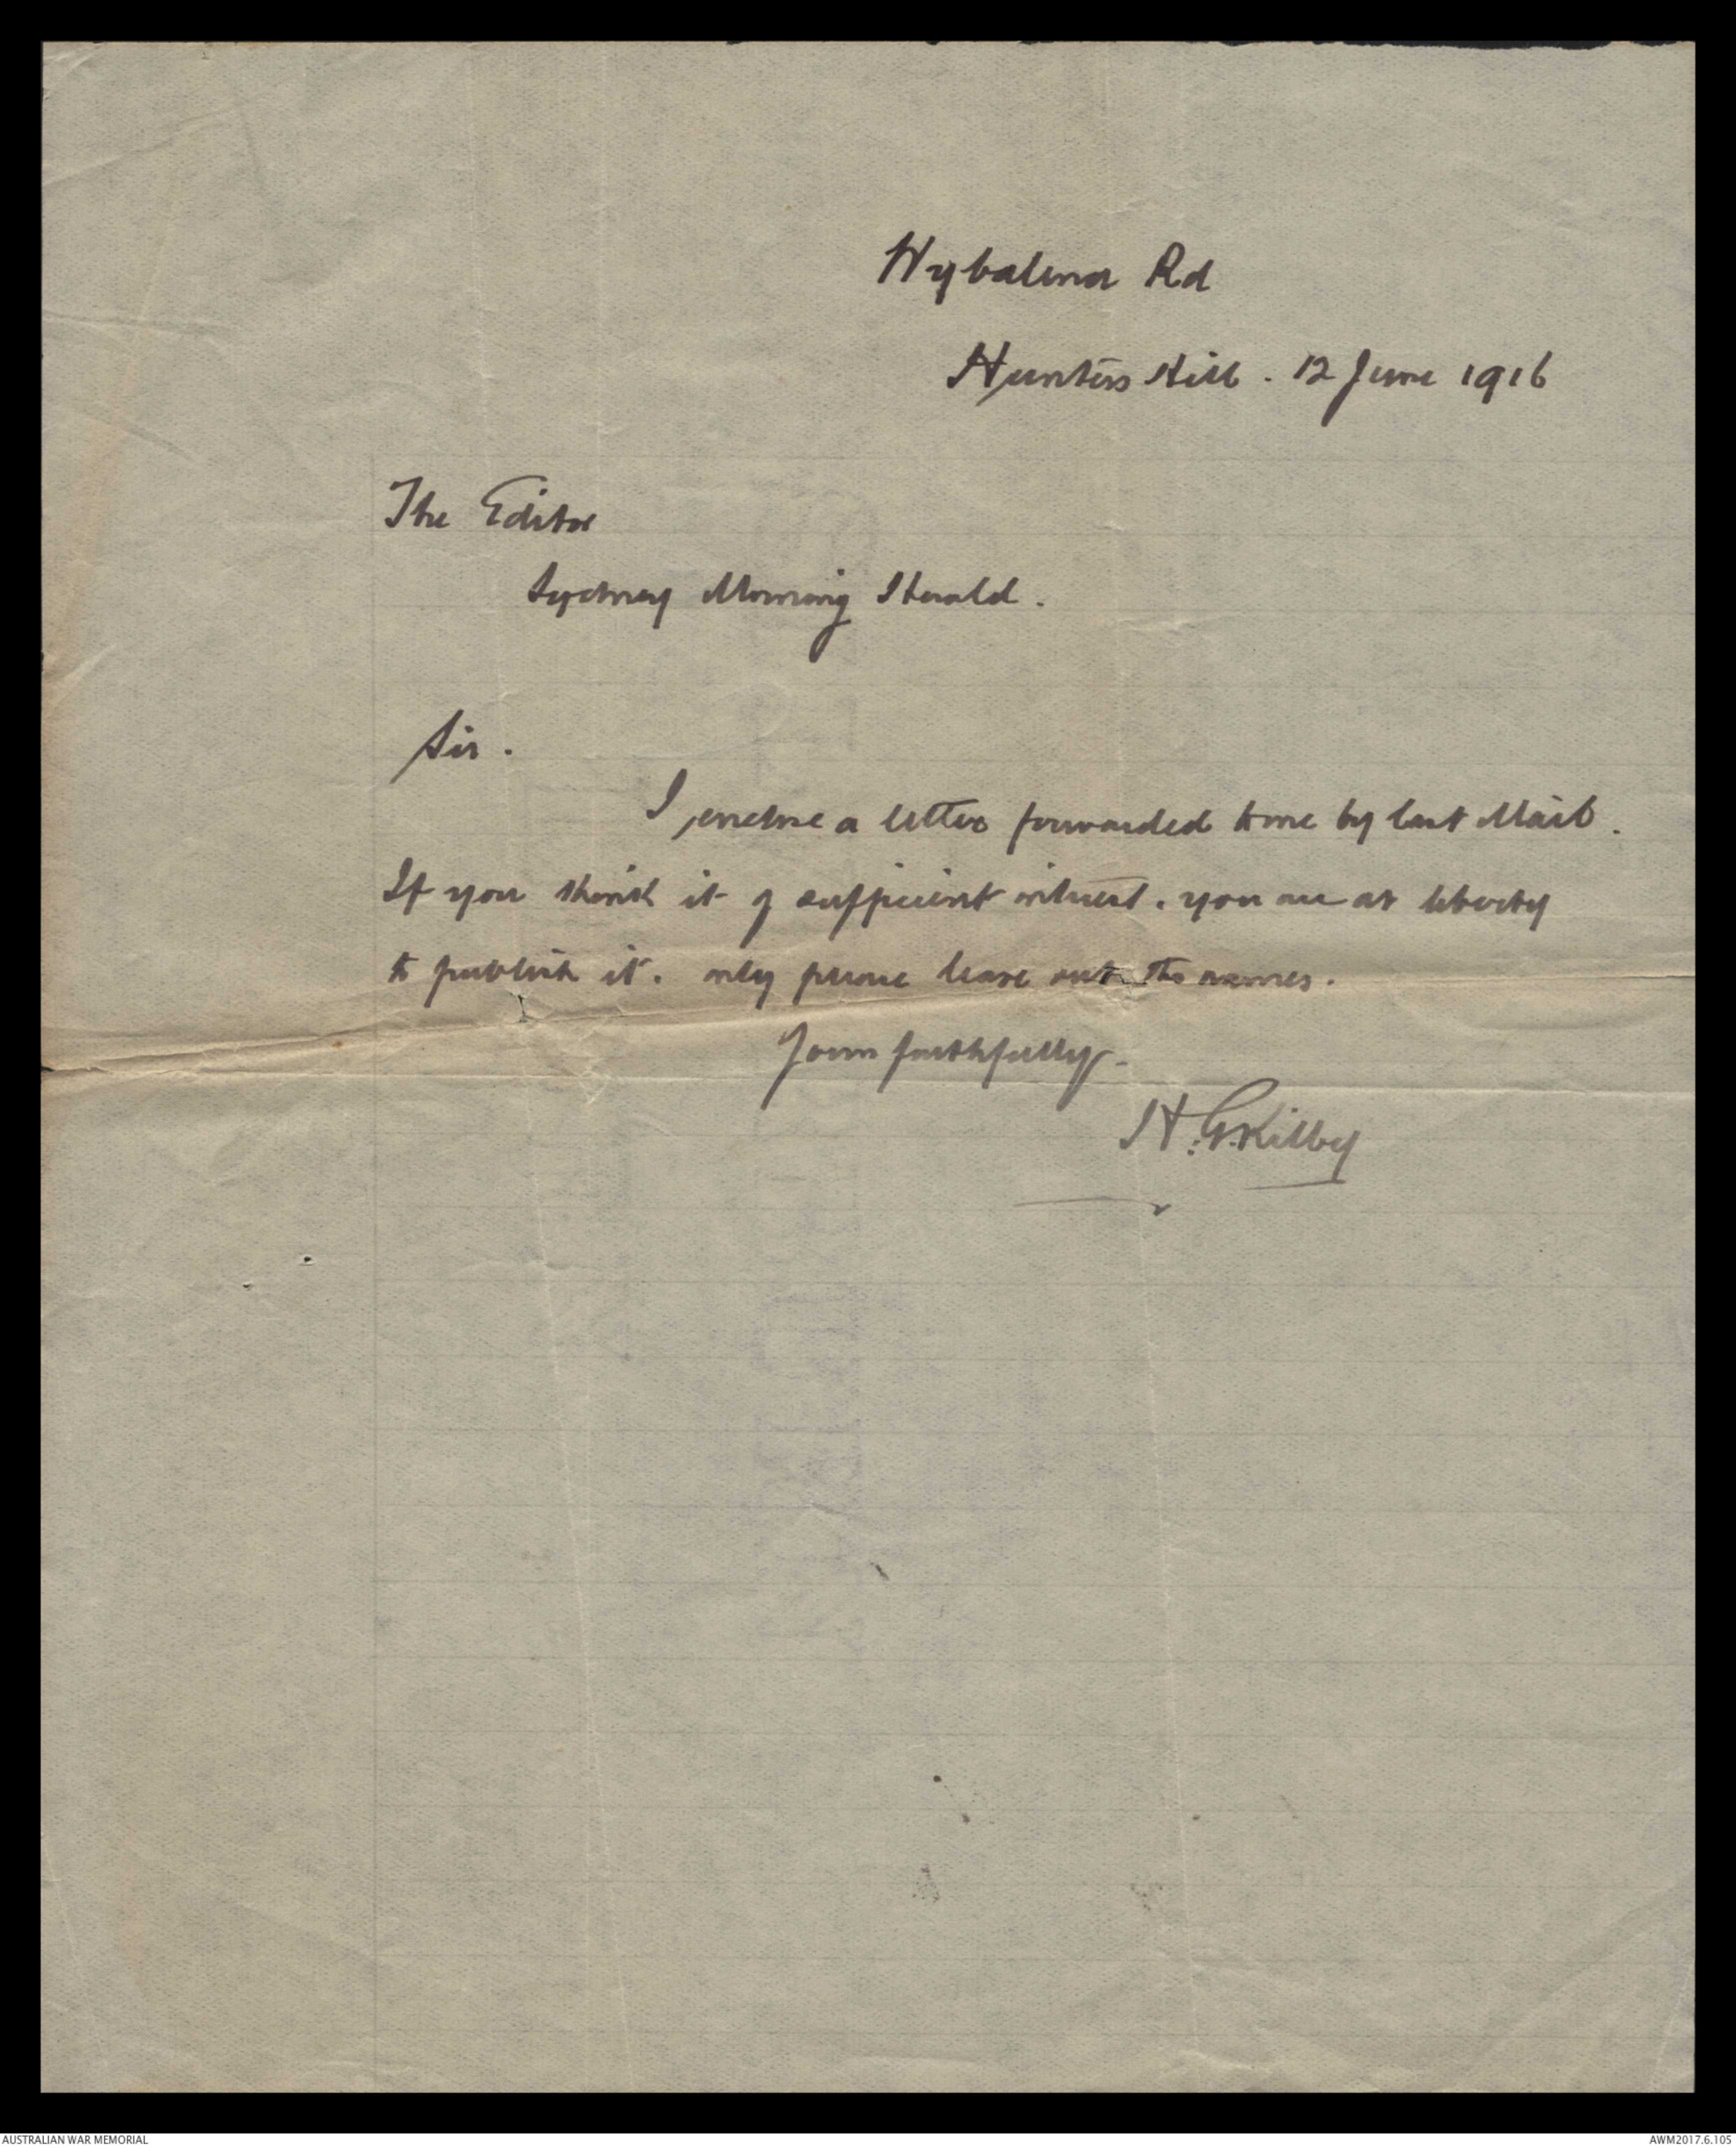 Wybalena Rd
Hunters Hill. 12 June 1916
The Editor
Sydney Morning Herald.
Sir.
I enclose a letter forwarded to me by last Mail.
If you think it of sufficient interest. you are at liberty
to publish it. only please leave out the names.
Yours faithfully
H. G. Kilby
AUSTRALIAN WAR MEMORIAL
AWM2017.6.105